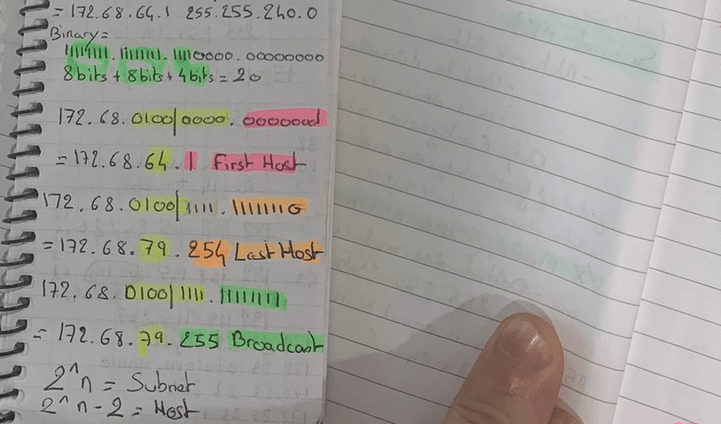 = 172.68.64.1 255.255.240.0
Binary =
11111111.11111111.11110000.00000000
8bits + 8bits + 4bits = 20
172.68.0100|0000.00000001
= 172.68.64.1 First Host
172.68.0100|1111.11111110
= 172.68.79.254 Last Host
172.68.0100|1111.11111111
= 172.68.79.255 Broadcast
2^n = Subnet
2^n-2 = Host